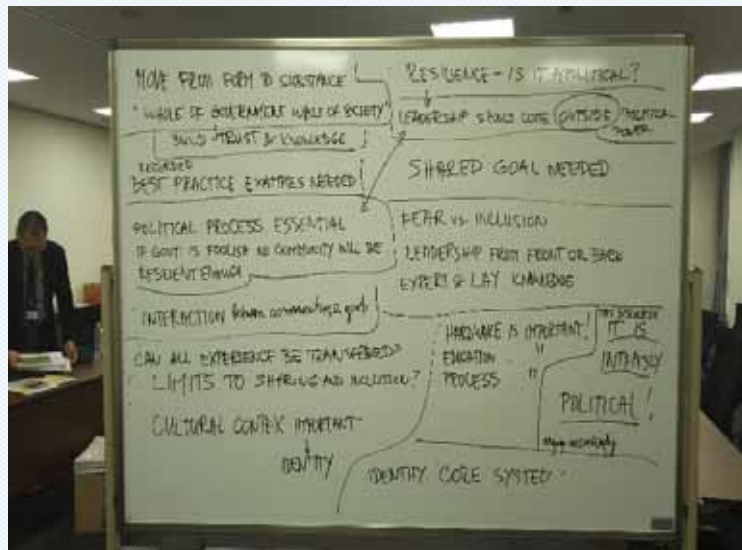 MOVE FROM FORM TO SUBSTANCE
"WHOLE OF GOVERNMENT WHOLE OF SOCIETY"
BUILD TRUST & KNOWLEDGE
RECORDED
BEST PRACTICE EXAMPLES NEEDED
POLITICAL PROCESS ESSENTIAL
IF GOVT IS FOOLISH NO COMMUNITY WILL BE
RESILIENT ENOUGH
INTERACTION between communities & govts
CAN ALL EXPERIENCE BE TRANSFERRED?
LIMITS TO SHARING AND INCLUSION?
CULTURAL CONTEX IMPORTANT
IDENTITY
RESILIENCE - IS IT APOLITICAL?
LEADERSHIP SHOULD COME OUTSIDE POLITICAL
POWER
SHARED GOAL NEEDED
FEAR vs. INCLUSION
LEADERSHIP FROM FRONT OR BACK
EXPERT & LAY KNOWLEDGE
HARDWARE IS IMPORTANT!
EDUCATION "
PROCESS "
IT IS
INTENSELY
POLITICAL!
IDENTIFY CORE SYSTEMS